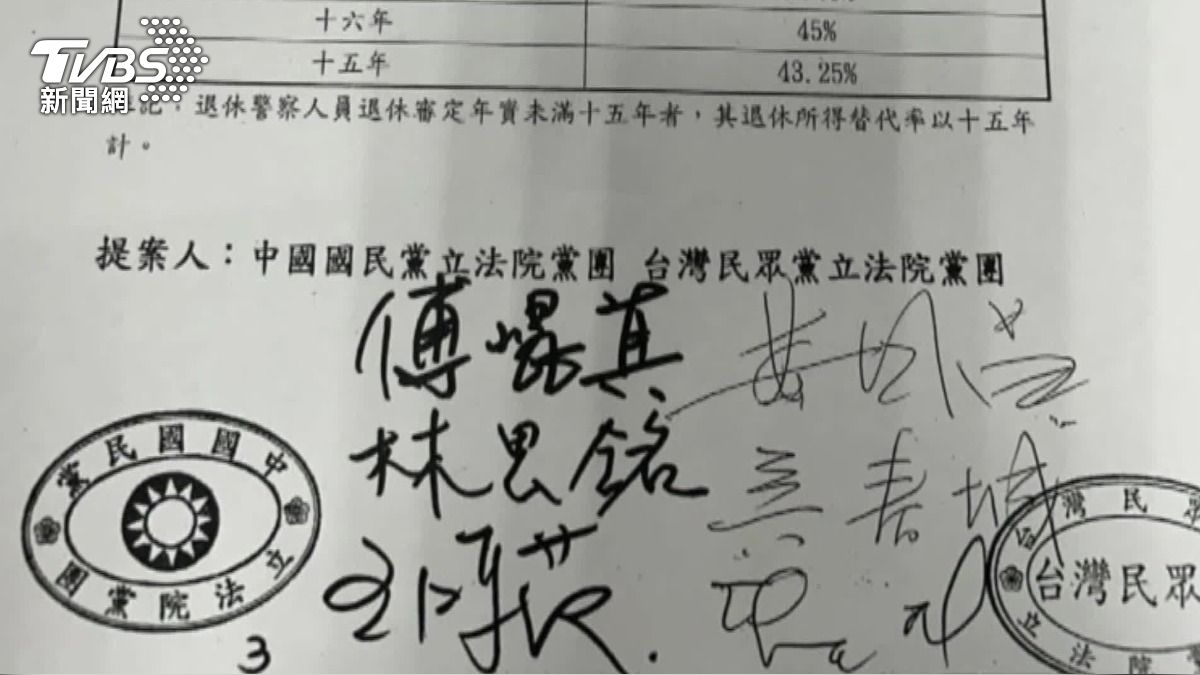 TVBS
新聞網
十六年 45%
十五年 43.25%
記，退休警察人員退休審定年資未滿十五年者，其退休所得替代率以十五年
計。
提案人：中國國民黨立法院黨團 台灣民眾黨立法院黨團
傅崐萁
林思銘 吳春城
中國國民黨
立法院黨團
台灣民眾
台灣民眾
立法院
3